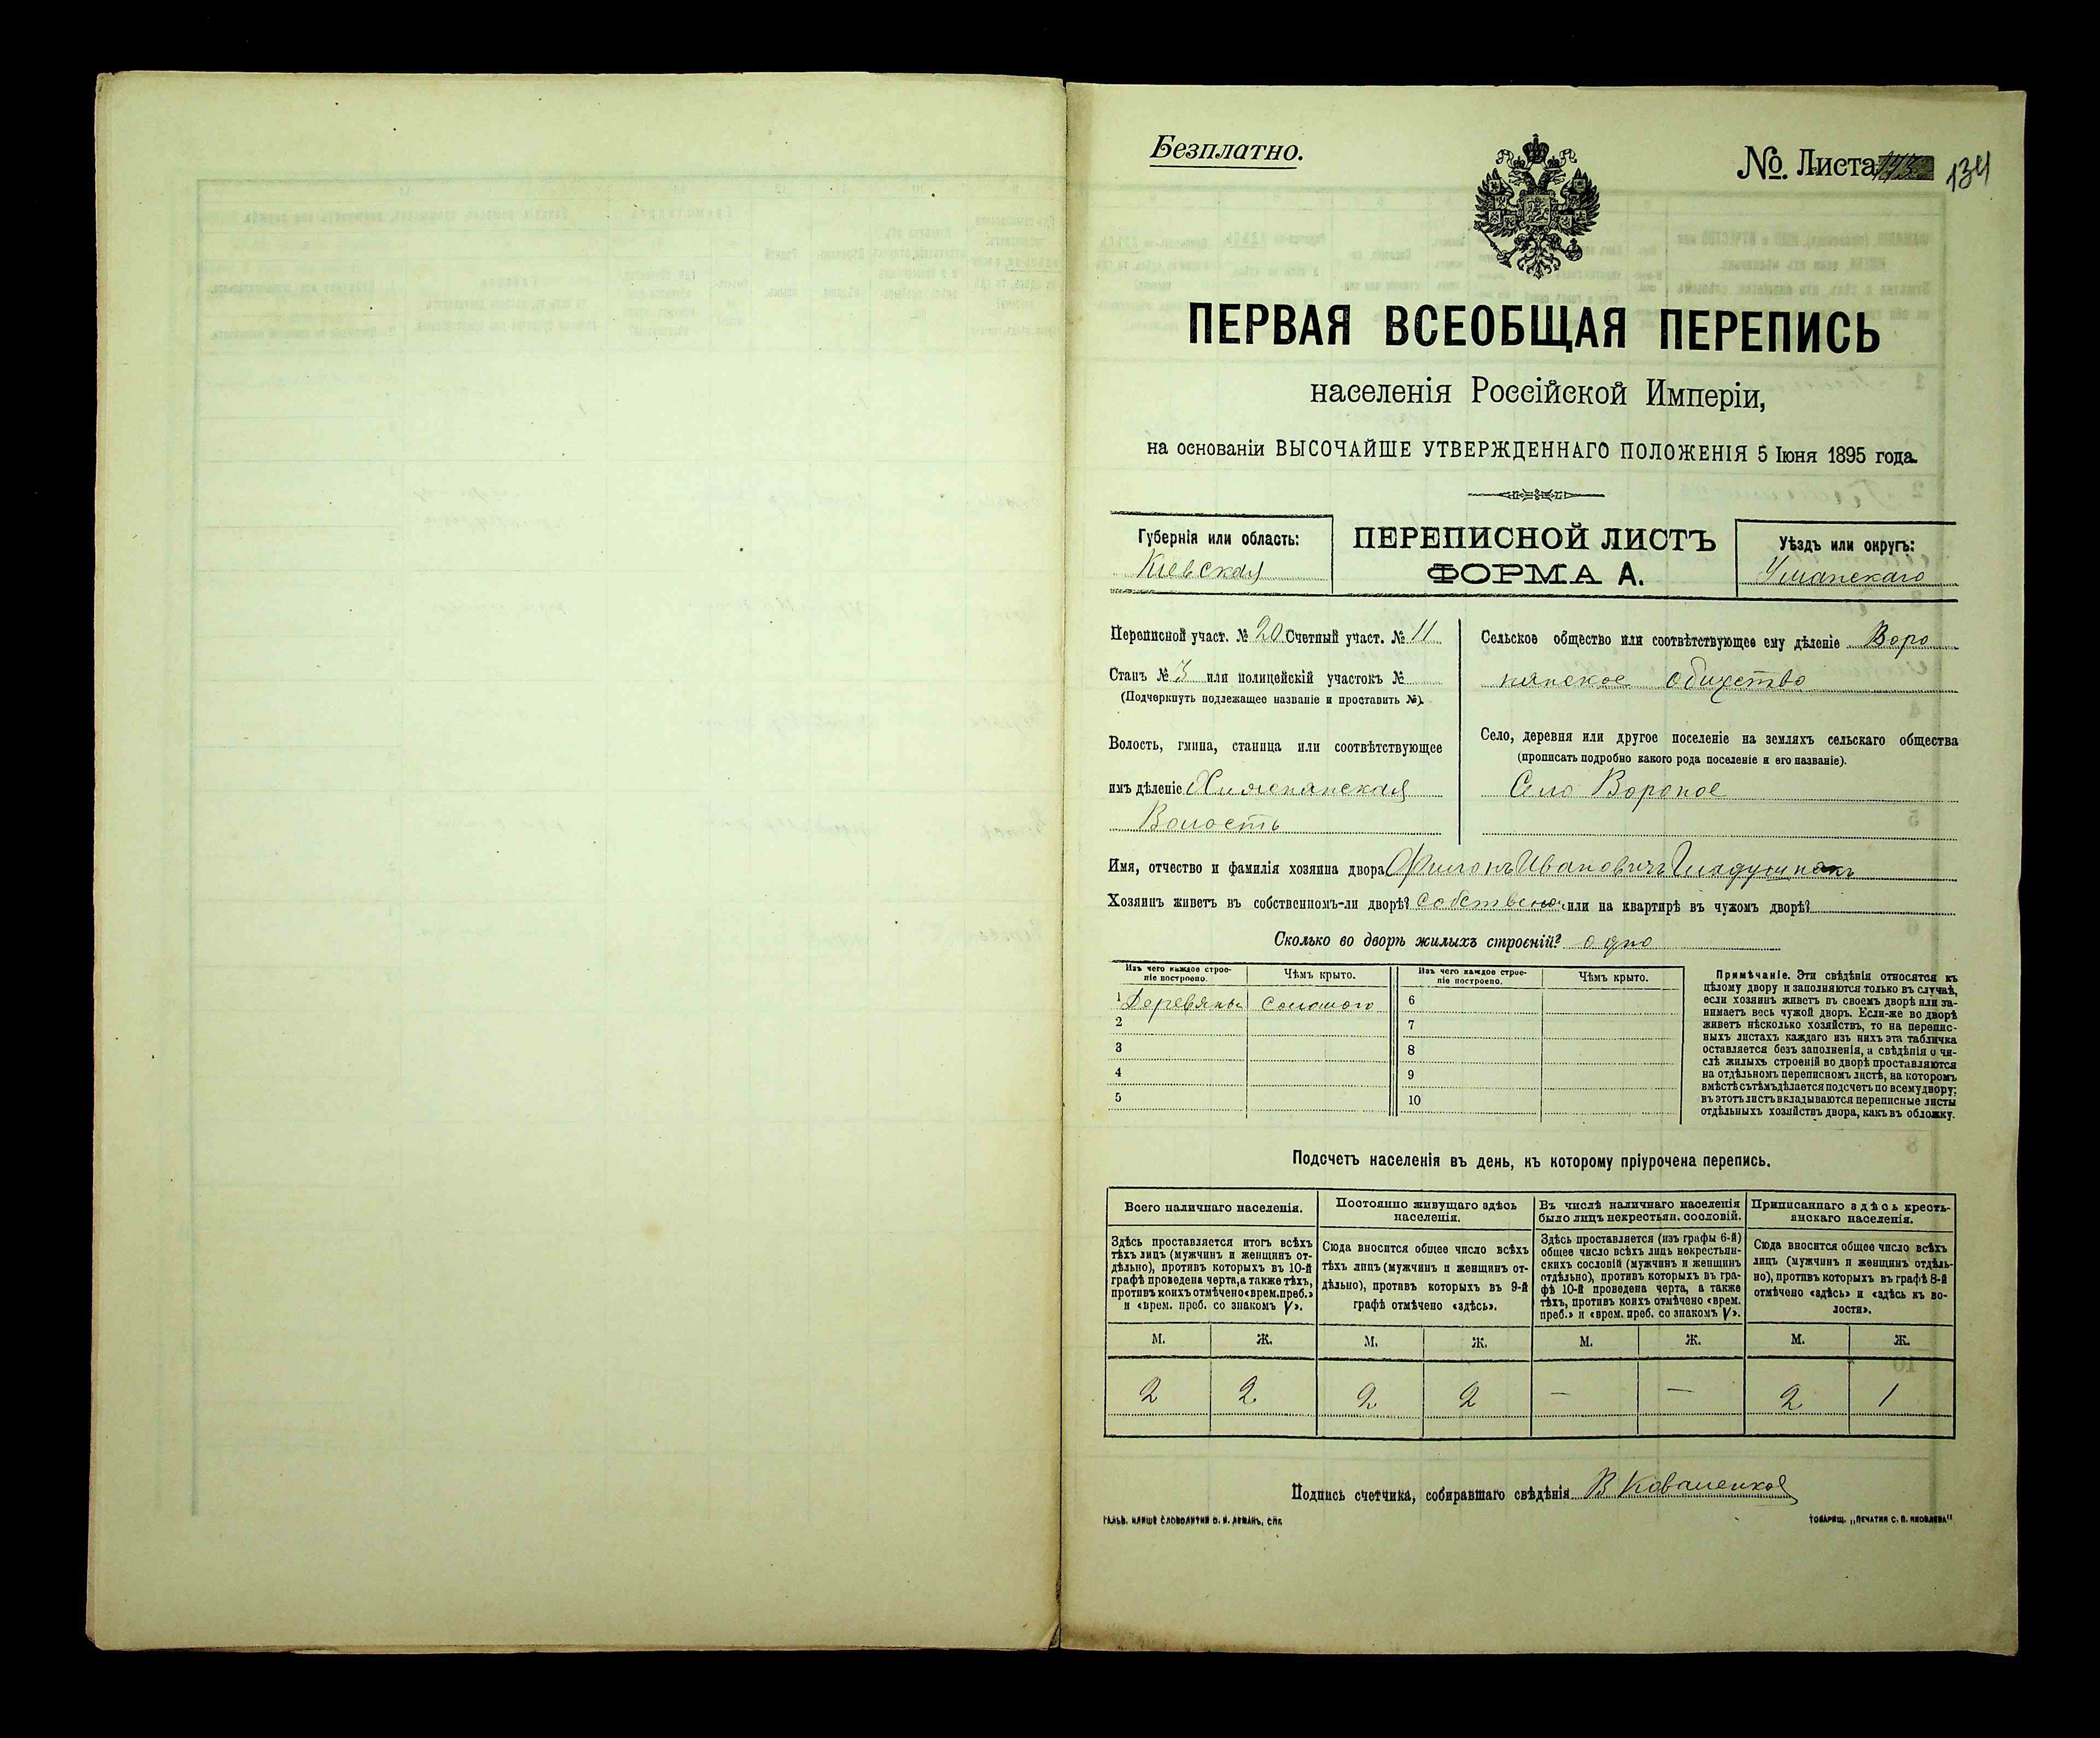 Безплатно.
№ Листа 134
ПЕРВАЯ ВСЕОБЩАЯ ПЕРЕПИСЬ
населенія Россійской Имперіи,
на основаніи ВЫСОЧАЙШЕ УТВЕРЖДЕННАГО ПОЛОЖЕНІЯ 5 Іюня 1895 года.
Губернія или область:
Кіевская
ПЕРЕПИСНОЙ ЛИСТЪ
ФОРМА А.
Уѣздъ или округъ:
Уманскаго
Переписной участ. № 20 Счетный участ. № 11
Станъ № 3 или полицейскій участокъ №
(Подчеркнуть подлежащее названіе и проставить №).
Волость, гмина, станица или соотвѣтствующее
имъ дѣленіе
Волость
Сельское общество или соотвѣтствующее ему дѣленіе Воро
нянское общество
Село, деревня или другое поселеніе на земляхъ сельскаго общества
(прописать подробно какого рода поселеніе и его названіе).
Село Вороное
Имя, отчество и фамилія хозяина двора Филонъ Ивановичъ
Хозяинъ живетъ въ собственномъ-ли дворѣ? или на квартирѣ въ чужомъ дворѣ?
Сколько во дворѣ жилыхъ строеній? одно
Изъ чего каждое строе-
ніе построено.
Чѣмъ крыто.
Изъ чего каждое строе-
ніе построено.
Чѣмъ крыто.
1 Соломою
2
3
4
5
6
7
8
9
10
Примѣчаніе. Эти свѣдѣнія относятся къ
цѣлому двору и заполняются только въ случаѣ,
если хозяинъ живетъ въ своемъ дворѣ или за-
нимаетъ весь чужой дворъ. Если-же во дворѣ
живетъ нѣсколько хозяйствъ, то на перепис-
ныхъ листахъ каждаго изъ нихъ эта табличка
оставляется безъ заполненія, а свѣдѣнія о чи-
слѣ жилыхъ строеній во дворѣ проставляются
на отдѣльномъ переписномъ листѣ, на которомъ
вмѣстѣ съ тѣмъ дѣлается подсчетъ по всему двору;
въ этотъ листъ вкладываются переписные листы
отдѣльныхъ хозяйствъ двора, какъ въ обложку.
Подсчетъ населенія въ день, къ которому пріурочена перепись.
Всего наличнаго населенія.
Здѣсь проставляется итогъ всѣхъ
тѣхъ лицъ (мужчинъ и женщинъ от-
дѣльно), противъ которыхъ въ 10-й
графѣ проведена черта, а также тѣхъ,
противъ коихъ отмѣчено «врем. преб.»
и «врем. преб. со знакомъ V».
Постоянно живущаго здѣсь
населенія.
Сюда вносится общее число всѣхъ
тѣхъ лицъ (мужчинъ и женщинъ от-
дѣльно), противъ которыхъ въ 9-й
графѣ отмѣчено «здѣсь».
Въ числѣ наличнаго населенія
было лицъ некрестьян. сословій.
Здѣсь проставляется (изъ графы 6-й)
общее число всѣхъ лицъ некрестьян-
скихъ сословій (мужчинъ и женщинъ
отдѣльно), противъ которыхъ въ гра-
фѣ 10-й проведена черта, а также
тѣхъ, противъ коихъ отмѣчено «врем.
преб.» и «врем. преб. со знакомъ V».
Приписаннаго здѣсь кресть-
янскаго населенія.
Сюда вносится общее число всѣхъ
лицъ (мужчинъ и женщинъ отдѣль-
но), противъ которыхъ въ графѣ 8-й
отмѣчено «здѣсь» и «здѣсь къ во-
лости».
М. Ж. М. Ж. М. Ж. М. Ж.
2 2 2 2 — — 2 1
Подпись счетчика, собиравшаго свѣдѣнія
ГАЛЬВ. КЛИШЕ СЛОВОЛИТНИ О. И. ЛЕМАНЪ, СПБ.
ТОВАРИЩ. „ПЕЧАТНЯ С. П. ЯКОВЛЕВА"